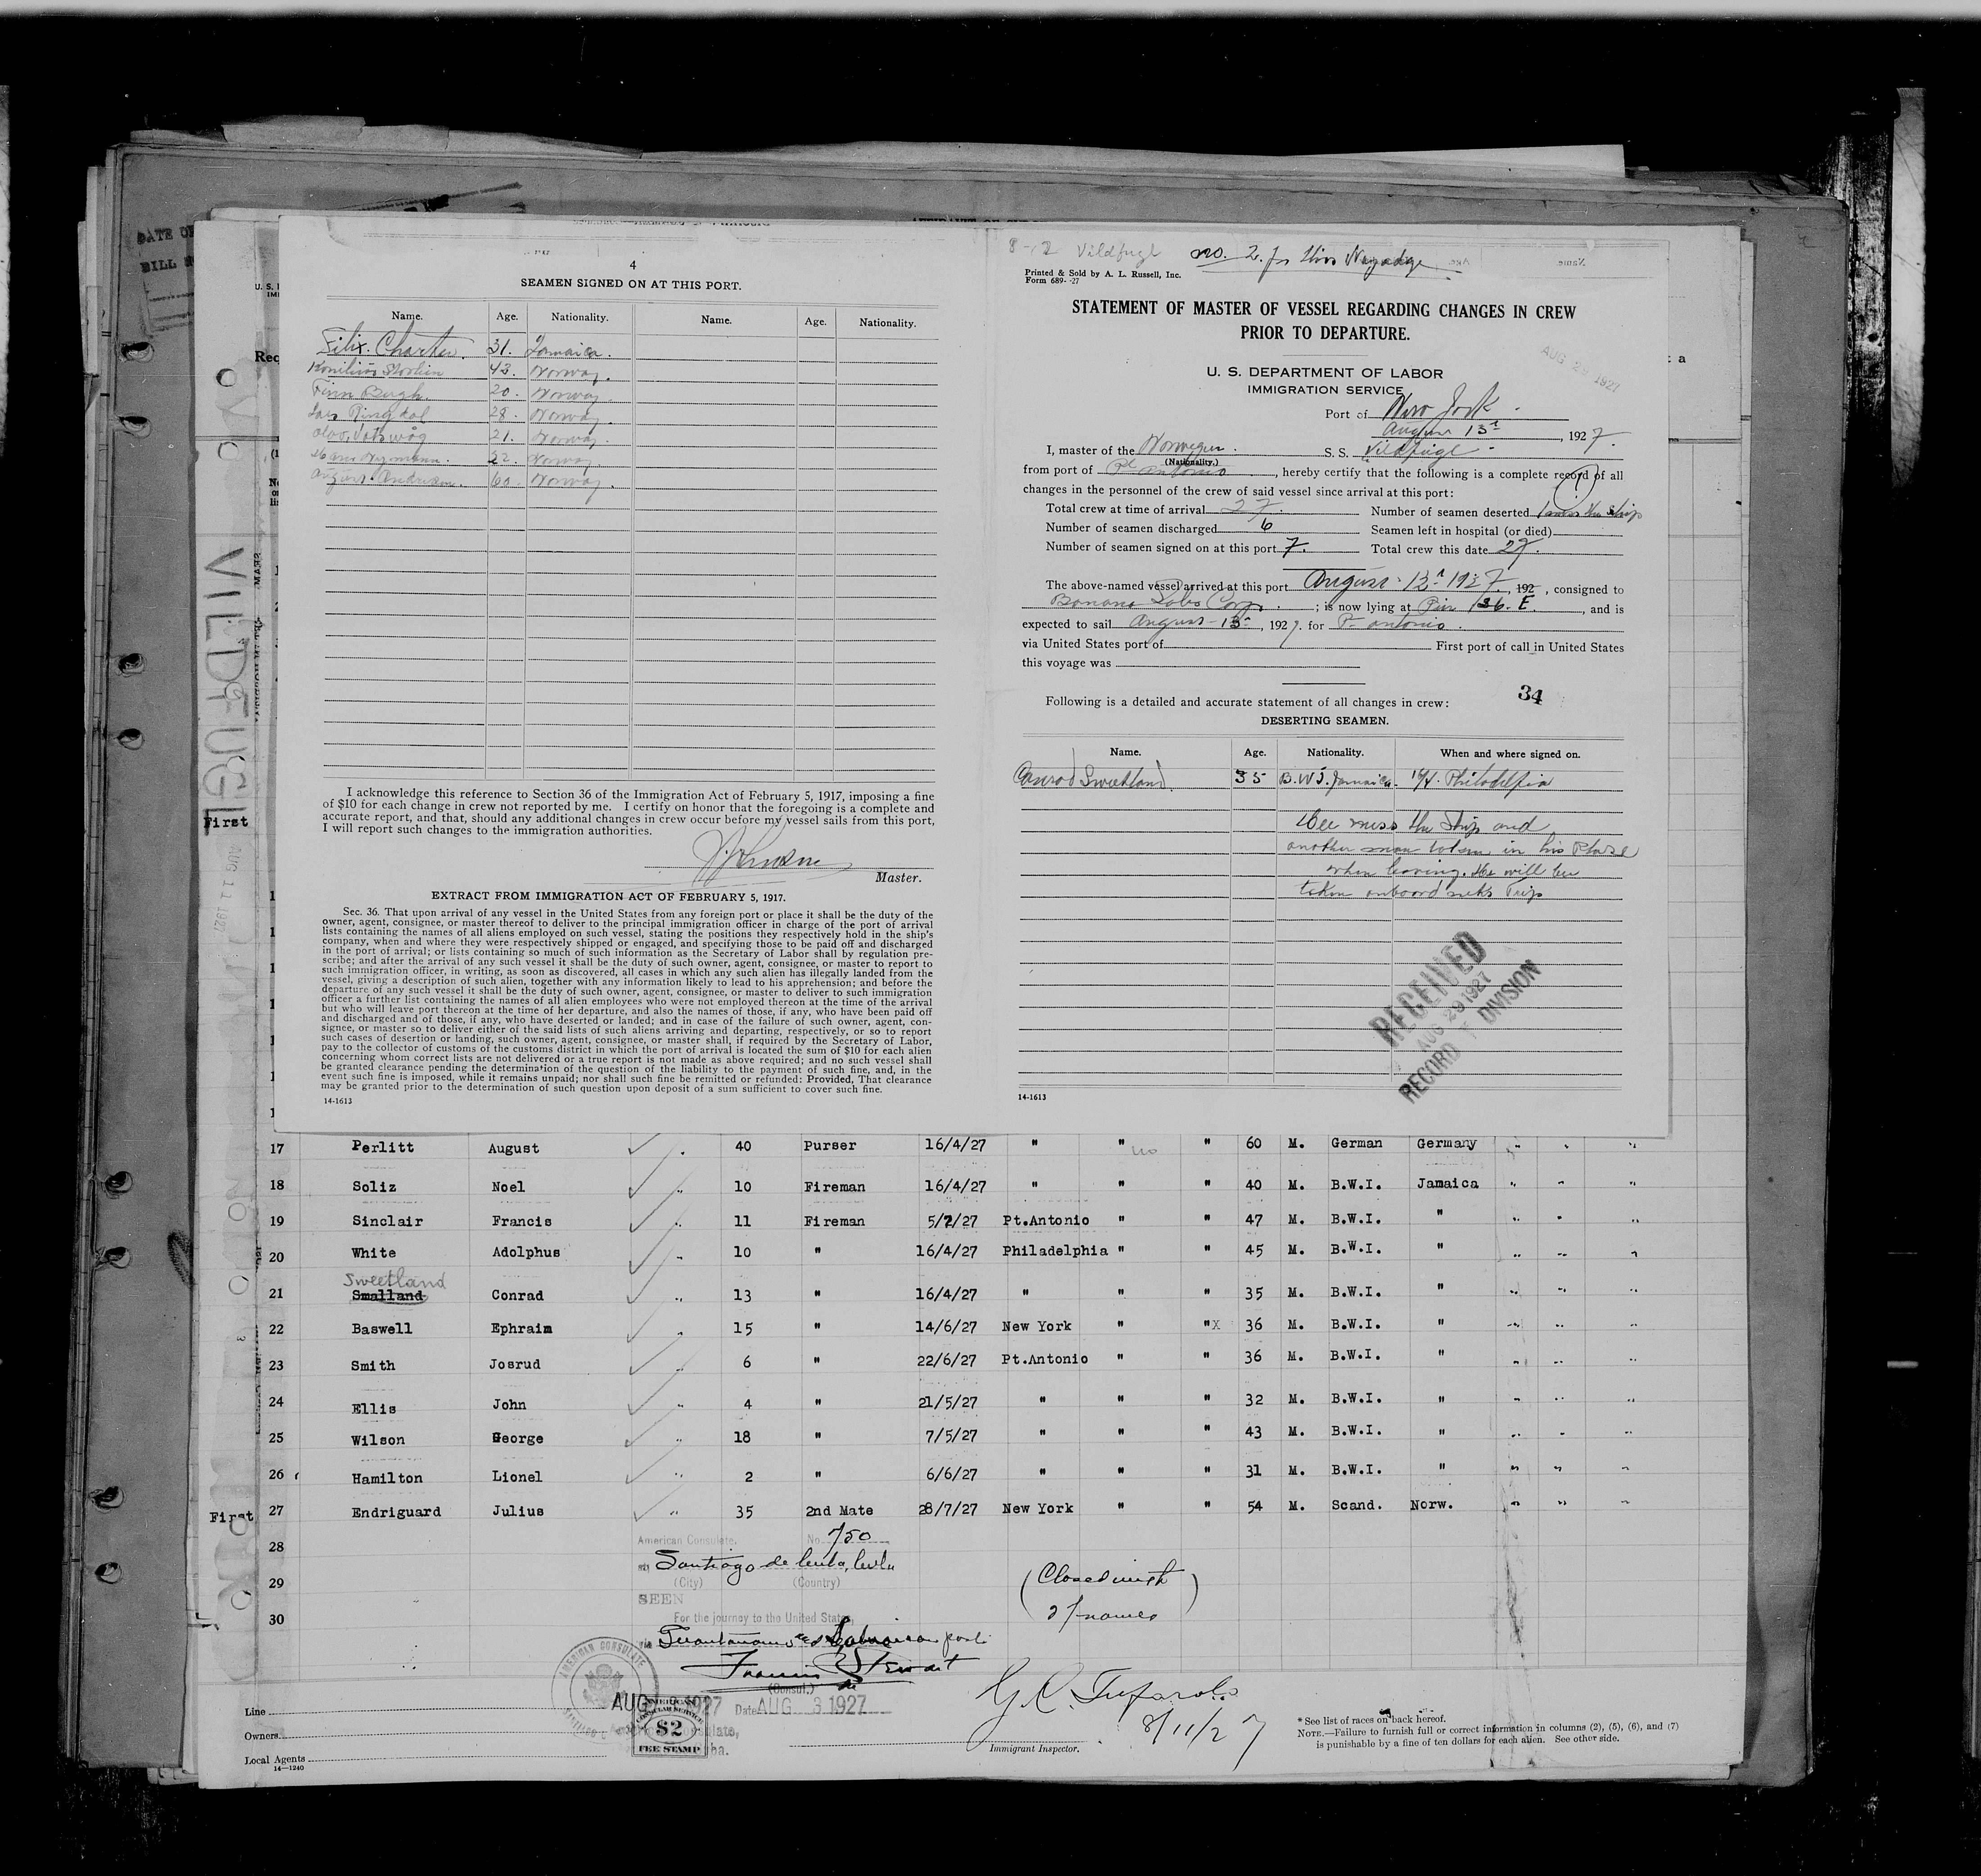 DATE OF
BILL
U. S.
4
SEAMEN SIGNED ON AT THIS PORT.
Name. Age. Nationality. Name. Age. Nationality.
Charter. 31. Jamaica.
43. Norway.
Finn Bergh. 20. Norway.
Lars Ringdal 28. Norway.
21. Norway.
22. Norway.
August Andersen. 60. Norway.
I acknowledge this reference to Section 36 of the Immigration Act of February 5, 1917, imposing a fine
of $10 for each change in crew not reported by me. I certify on honor that the foregoing is a complete and
accurate report, and that, should any additional changes in crew occur before my vessel sails from this port,
I will report such changes to the immigration authorities.
Master.
EXTRACT FROM IMMIGRATION ACT OF FEBRUARY 5, 1917.
Sec. 36. That upon arrival of any vessel in the United States from any foreign port or place it shall be the duty of the
owner, agent, consignee, or master thereof to deliver to the principal immigration officer in charge of the port of arrival
lists containing the names of all aliens employed on such vessel, stating the positions they respectively hold in the ship's
company, when and where they were respectively shipped or engaged, and specifying those to be paid off and discharged
in the port of arrival; or lists containing so much of such information as the Secretary of Labor shall by regulation pre-
scribe; and after the arrival of any such vessel it shall be the duty of such owner, agent, consignee, or master to report to
such immigration officer, in writing, as soon as discovered, all cases in which any such alien has illegally landed from the
vessel, giving a description of such alien, together with any information likely to lead to his apprehension; and before the
departure of any such vessel it shall be the duty of such owner, agent, consignee, or master to deliver to such immigration
officer a further list containing the names of all alien employees who were not employed thereon at the time of the arrival
but who will leave port thereon at the time of her departure, and also the names of those, if any, who have been paid off
and discharged and of those, if any, who have deserted or landed; and in case of the failure of such owner, agent, con-
signee, or master so to deliver either of the said lists of such aliens arriving and departing, respectively, or so to report
such cases of desertion or landing, such owner, agent, consignee, or master shall, if required by the Secretary of Labor,
pay to the collector of customs of the customs district in which the port of arrival is located the sum of $10 for each alien
concerning whom correct lists are not delivered or a true report is not made as above required; and no such vessel shall
be granted clearance pending the determination of the question of the liability to the payment of such fine, and, in the
event such fine is imposed, while it remains unpaid; nor shall such fine be remitted or refunded: Provided, That clearance
may be granted prior to the determination of such question upon deposit of a sum sufficient to cover such fine.
14-1613
8-12 Vildfugl no. 2. for this Voyadge
Printed & Sold by A. L. Russell, Inc.
Form 689--27
STATEMENT OF MASTER OF VESSEL REGARDING CHANGES IN CREW
PRIOR TO DEPARTURE.
AUG 29 1927
U. S. DEPARTMENT OF LABOR
IMMIGRATION SERVICE
Port of New York
August 13th, 1927.
I, master of the Norwegian. S. S. Vildfugl
(Nationality.)
from port of Pt Antonio, hereby certify that the following is a complete record of all
changes in the personnel of the crew of said vessel since arrival at this port:
Total crew at time of arrival 27. Number of seamen deserted 1 miss the ship
Number of seamen discharged 6 Seamen left in hospital (or died)
Number of seamen signed on at this port 7. Total crew this date 27.
The above-named vessel arrived at this port August 12th 1927, 192 , consigned to
Banana Sales Corp. ; is now lying at Pier 136. E, and is
expected to sail August 13th, 1927. for Pt antonio.
via United States port of First port of call in United States
this voyage was
34
Following is a detailed and accurate statement of all changes in crew:
DESERTING SEAMEN.
Name. Age. Nationality. When and where signed on.
Conrad Sweetland. 35 B.W.I. Jamaica. 16/4. Philadelfia
miss the Ship and
another man taken in his Place
when leaving. He will be
taken onboard next Trip
RECEIVED
AUG 29 1927
RECORD DIVISION
14-1613
VILDFUGL
First
AUG 11 1927
17 Perlitt August 40 Purser 16/4/27 " " no " 60 M. German Germany " " "
18 Soliz Noel " 10 Fireman 16/4/27 " " " 40 M. B.W.I. Jamaica " " "
19 Sinclair Francis " 11 Fireman 5/2/27 Pt.Antonio " " 47 M. B.W.I. " " " "
20 White Adolphus " 10 " 16/4/27 Philadelphia " " 45 M. B.W.I. " " " "
Sweetland
21 Smalland Conrad " 13 " 16/4/27 " " " 35 M. B.W.I. " " " "
22 Baswell Ephraim " 15 " 14/6/27 New York " "X 36 M. B.W.I. " " " "
23 Smith Josrud " 6 " 22/6/27 Pt.Antonio " " 36 M. B.W.I. " " " "
24 Ellis John " 4 " 21/5/27 " " " 32 M. B.W.I. " " " "
25 Wilson George " 18 " 7/5/27 " " " 43 M. B.W.I. " " " "
26 Hamilton Lionel " 2 " 6/6/27 " " " 31 M. B.W.I. " " " "
First 27 Endriguard Julius " 35 2nd Mate 28/7/27 New York " " 54 M. Scand. Norw. " " "
28
29
30
American Consulate, No. 750
at Santiago de Cuba, Cuba
(City) (Country)
SEEN
For the journey to the United States,
via Guantanamo and Jamaican port
Francis Stewart
(Consul.)
AUG 3 1927 Date AUG 3 1927
AMERICAN CONSULATE
AMERICAN CONSULAR SERVICE
$2
FEE STAMP
(Closed with
27 names)
8/11/27
Immigrant Inspector.
Line
Owners
Local Agents
14—1240
* See list of races on back hereof.
NOTE.—Failure to furnish full or correct information in columns (2), (5), (6), and (7)
is punishable by a fine of ten dollars for each alien. See other side.